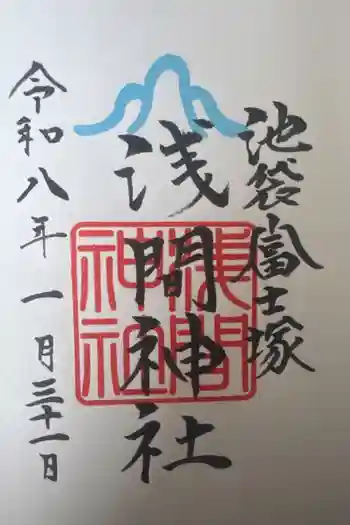 池袋富士塚
浅間神社
浅間神社
令和八年一月三十一日